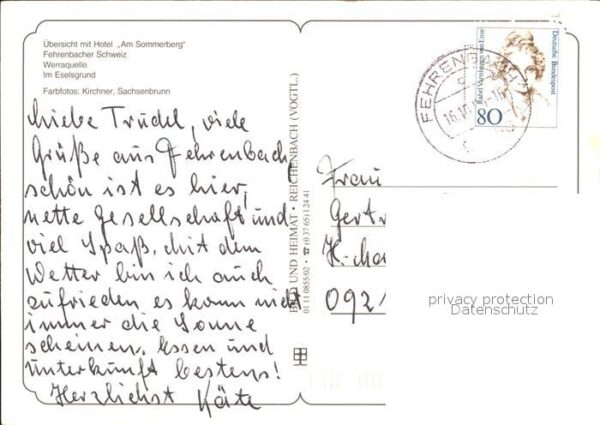 Übersicht mit Hotel „Am Sommerberg"
Fehrenbacher Schweiz
Werraquelle
Im Eselsgrund
Farbfotos: Kirchner, Sachsenbrunn
Liebe Trudel, viele
Grüße aus Fehrenbach
schön ist es hier,
nette Gesellschaft und
viel Spaß. Mit dem
Wetter bin ich auch
zufrieden es kann nicht
immer die Sonne
scheinen. Essen und
Unterkunft bestens!
Herzlichst Käte
BILD UND HEIMAT • REICHENBACH (VOGTL.)
01 11 0855/02 • ☎ (0 37 65) 124 41
FEHRENBACH
Deutsche Bundespost
80
Frau
Gert
092
privacy protection
Datenschutz